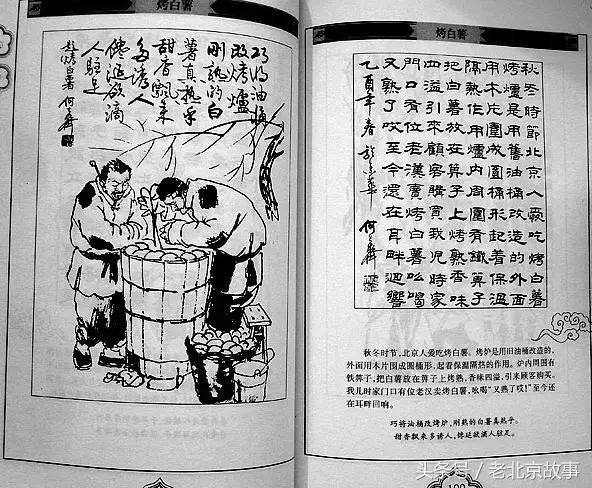 烤白薯
巧將油桶
改烤爐
剛熟的白
薯真熱乎
甜香飄來
多誘人
饞涎欲滴
人駐足
烤白薯 何大齊
烤白薯
秋冬時節北京人愛吃烤白薯
烤爐是用舊油桶改造的外面
用木片圍成圓桶形起着保溫
隔熱作用爐内周圍有鐵箅子
把白薯放在箅子上烤熟香味
四溢引來顧客購買我兒時家
門口有位老漢賣烤白薯吆喝
又熟了哎至今還在耳畔迴響
乙酉年春於京華 何大齊
秋冬时节,北京人爱吃烤白薯。烤炉是用旧油桶改造的,
外面用木片围成圆桶形,起着保温隔热的作用。炉内周围有
铁箅子,把白薯放在箅子上烤熟,香味四溢,引来顾客购买。
我儿时家门口有位老汉卖烤白薯,吆喝“又熟了哎!”至今还
在耳畔回响。
巧将油桶改烤炉,刚熟的白薯真热乎。
甜香飘来多诱人,馋涎欲滴人驻足。
头条号 / 老北京故事